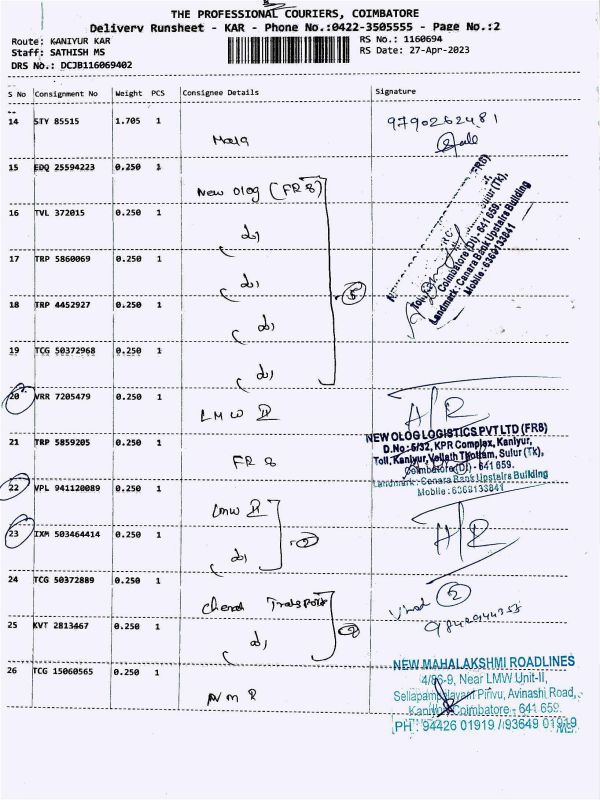 THE PROFESSIONAL COURIERS, COIMBATORE
Delivery Runsheet - KAR - Phone No.:0422-3505555 - Page No.:2
Route: KANIYUR KAR
Staff: SATHISH MS
DRS No.: DCJB116069402
RS No.: 1160694
RS Date: 27-Apr-2023
S No Consignment No Weight PCS Consignee Details Signature
14 STY 85515 1.705 1
9790262481
15 EDQ 25594223 0.250 1 New olog (FR 8)
16 TVL 372015 0.250 1
17 TRP 5860069 0.250 1
18 TRP 4452927 0.250 1
19 TCG 50372968 0.250 1
5
Coimbatore (Dt) - 641 659.
Landmark : Canara Bank Upstairs Building
Mobile : 6369133841
20 VRR 7205479 0.250 1 LMW II
A/R
21 TRP 5859205 0.250 1 FR 8
NEW OLOG LOGISTICS PVT LTD (FR8)
D.No : 5/32, KPR Complex, Kaniyur,
Toll, Kaniyur, Vellath Thottam, Sulur (Tk),
Coimbatore (Dt) - 641 659.
Landmark : Canara Bank Upstairs Building
Mobile : 6369133841
22 VPL 941120089 0.250 1 LMW II
23 IXM 503464414 0.250 1
2
A/R
24 TCG 50372889 0.250 1 Transport
2
25 KVT 2813467 0.250 1
2
26 TCG 15060565 0.250 1
NEW MAHALAKSHMI ROADLINES
4/86-9, Near LMW Unit-II,
Pirivu, Avinashi Road,
Kaniyur, Coimbatore - 641 659.
PH : 94426 01919 / 93649 01919